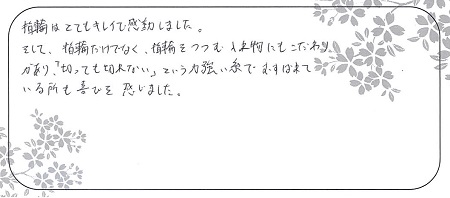 指輪はとてもキレイで感動しました。
そして、指輪だけでなく、指輪をつつむ入れ物にもこだわり
があり、「切っても切れない」という力強い糸でむすばれて
いる所も喜びを感じました。